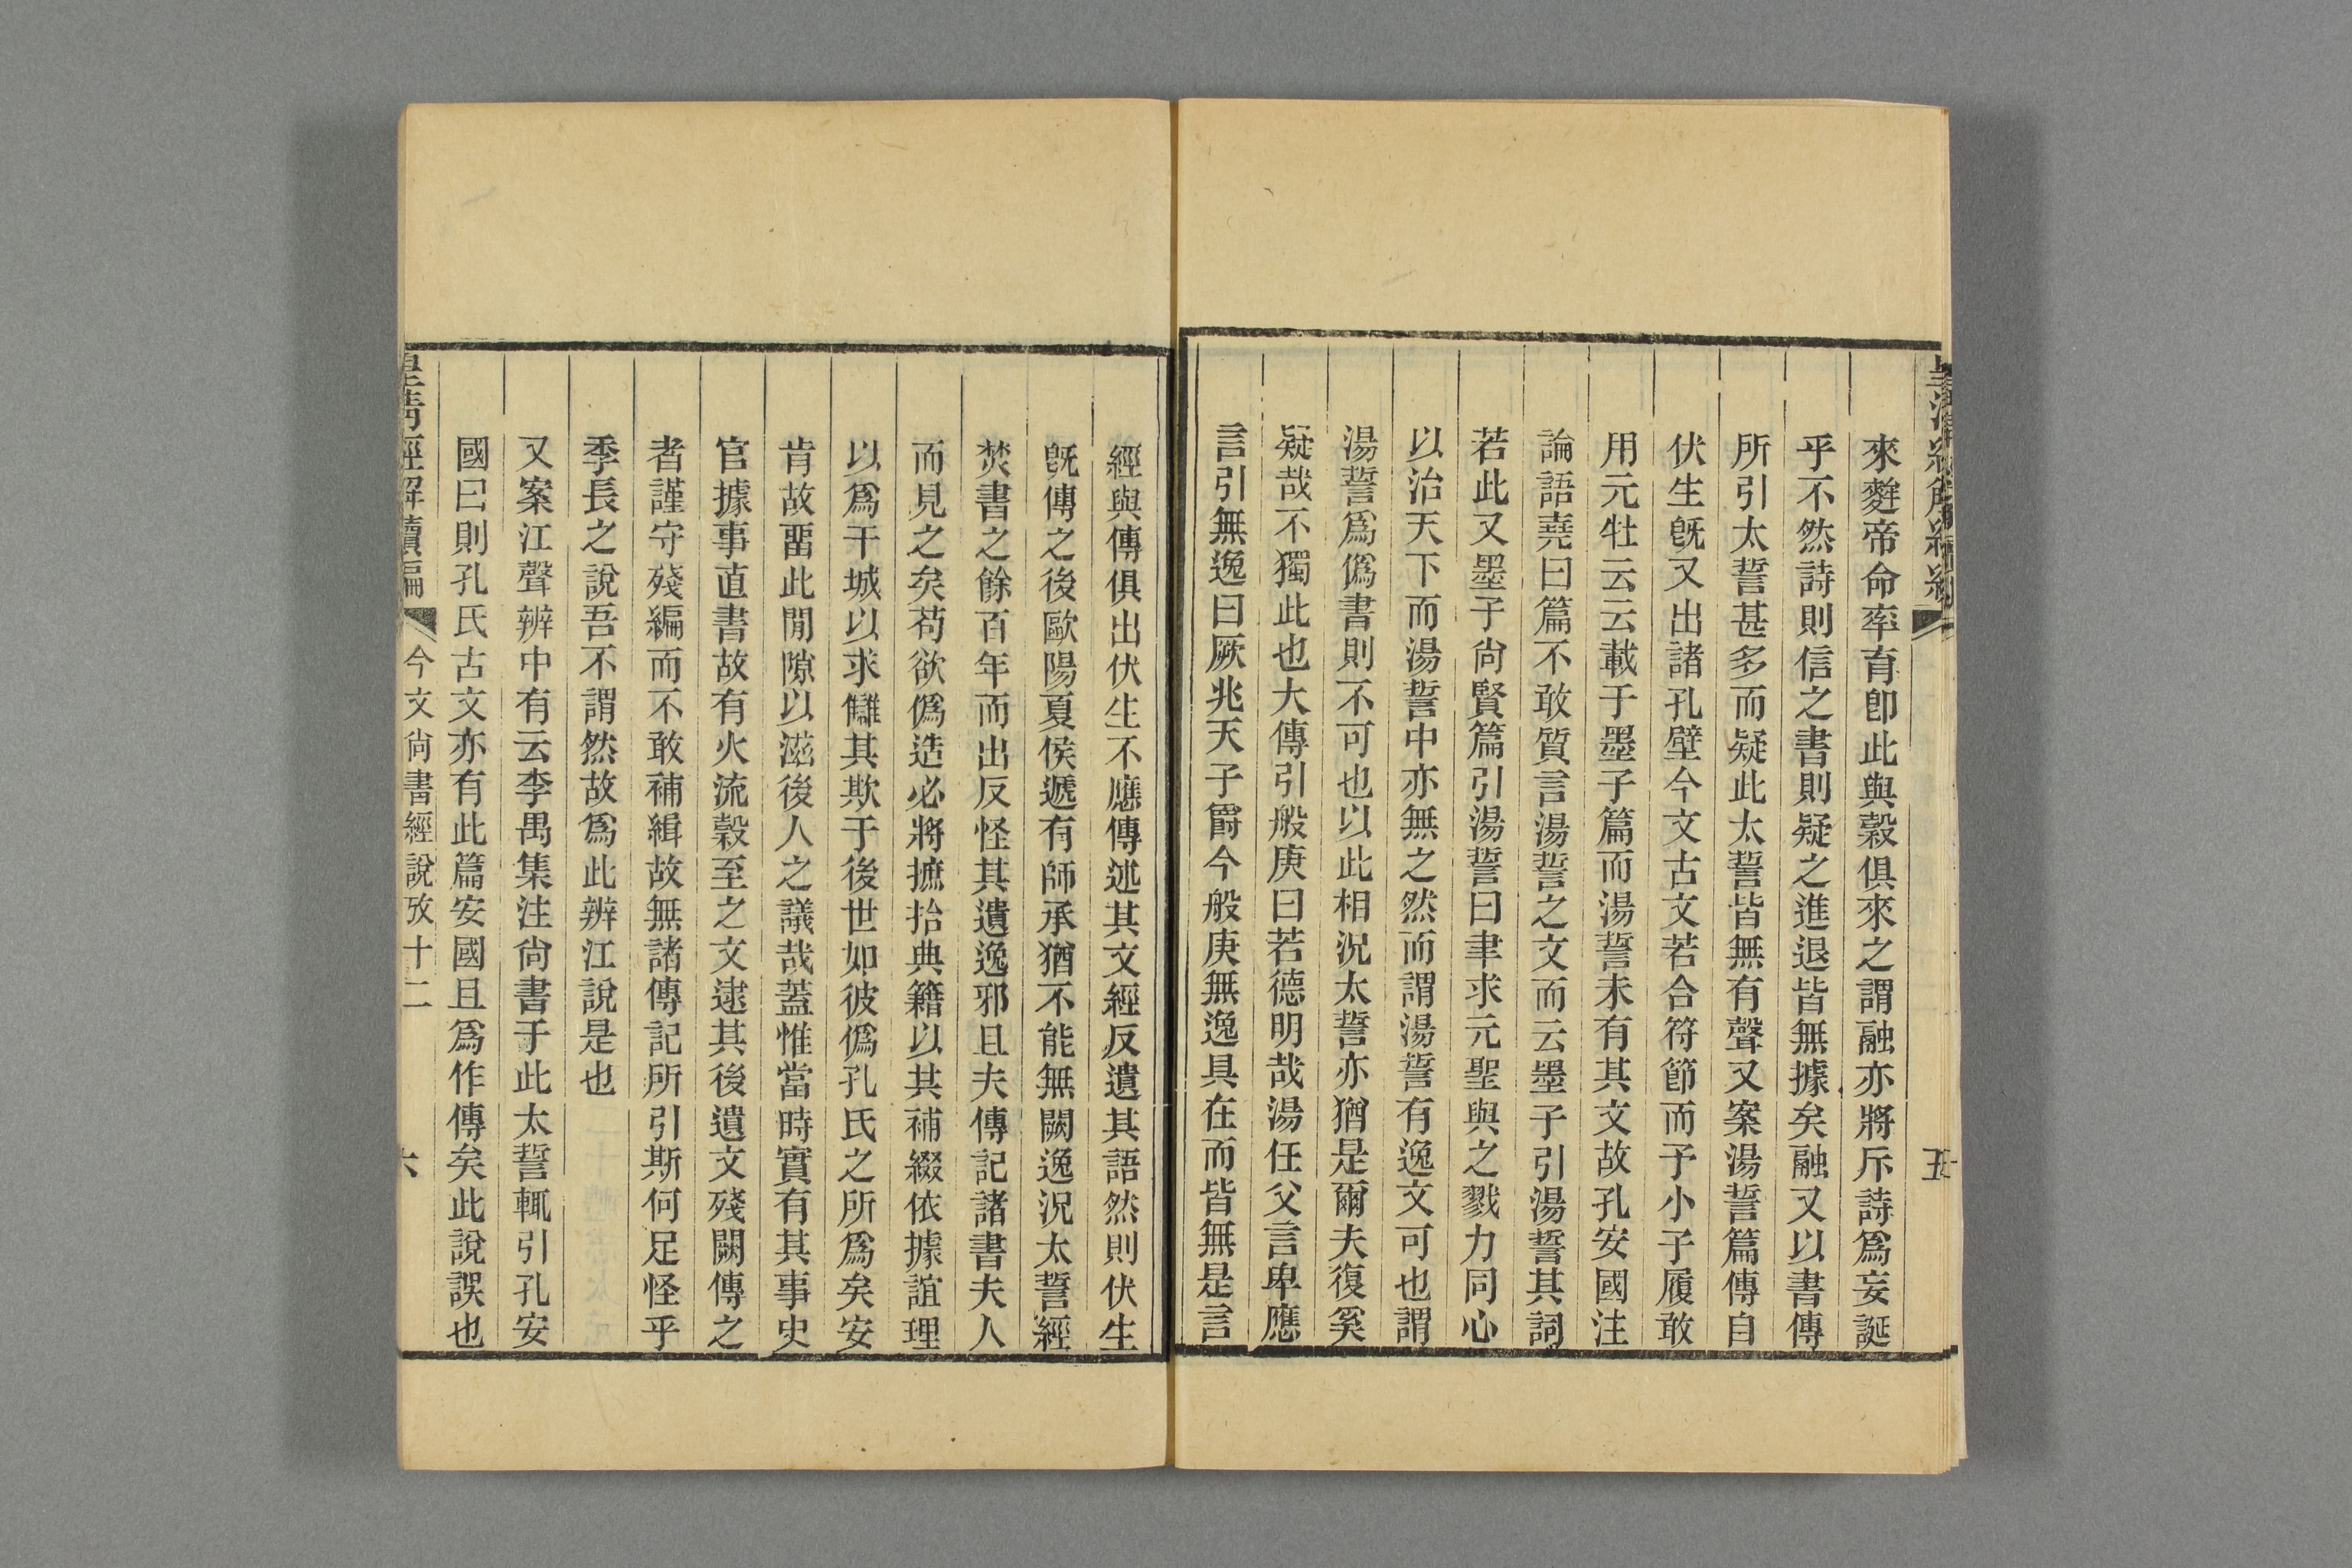 來麰帝命率育卽此與穀俱來之謂融亦將斥詩爲妄誕
乎不然詩則信之書則疑之進退皆無據矣融又以書傳
所引太誓甚多而疑此太誓皆無有聲又案湯誓篇傳自
伏生旣又出諸孔壁今文古文若合符節而予小子履敢
用元牡云云載于墨子篇而湯誓未有其文故孔安國注
論語堯曰篇不敢質言湯誓之文而云墨子引湯誓其詞
若此又墨子尙賢篇引湯誓曰聿求元聖與之戮力同心
以治天下而湯誓中亦無之然而謂湯誓有逸文可也謂
湯誓爲僞書則不可也以此相況太誓亦猶是爾夫復奚
疑哉不獨此也大傳引般庚曰若德明哉湯任父言卑應
言引無逸曰厥兆天子爵今般庚無逸具在而皆無是言
經與傳俱出伏生不應傳述其文經反遺其語然則伏生
旣傳之後歐陽夏侯遞有師承猶不能無闕逸況太誓經
焚書之餘百年而出反怪其遺逸邪且夫傳記諸書夫人
而見之矣苟欲僞造必將摭拾典籍以其補綴依據誼理
以爲干城以求讎其欺于後世如彼僞孔氏之所爲矣安
肯故畱此閒隙以滋後人之議哉蓋惟當時實有其事史
官據事直書故有火流穀至之文逮其後遺文殘闕傳之
者謹守殘編而不敢補緝故無諸傳記所引斯何足怪乎
季長之說吾不謂然故爲此辨江說是也
又案江聲辨中有云李禺集注尙書于此太誓輒引孔安
國曰則孔氏古文亦有此篇安國且爲作傳矣此說誤也
皇淸經解續編
今文尙書經說攷十二
六
五